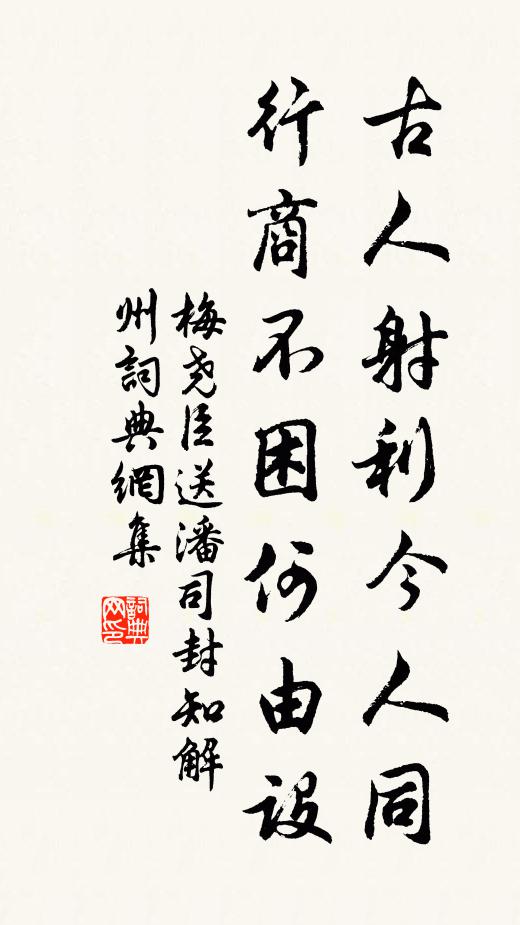 古人射利今人同
行商不困何由設
梅尧臣送潘司封知解
州詞典網集
詞典网印